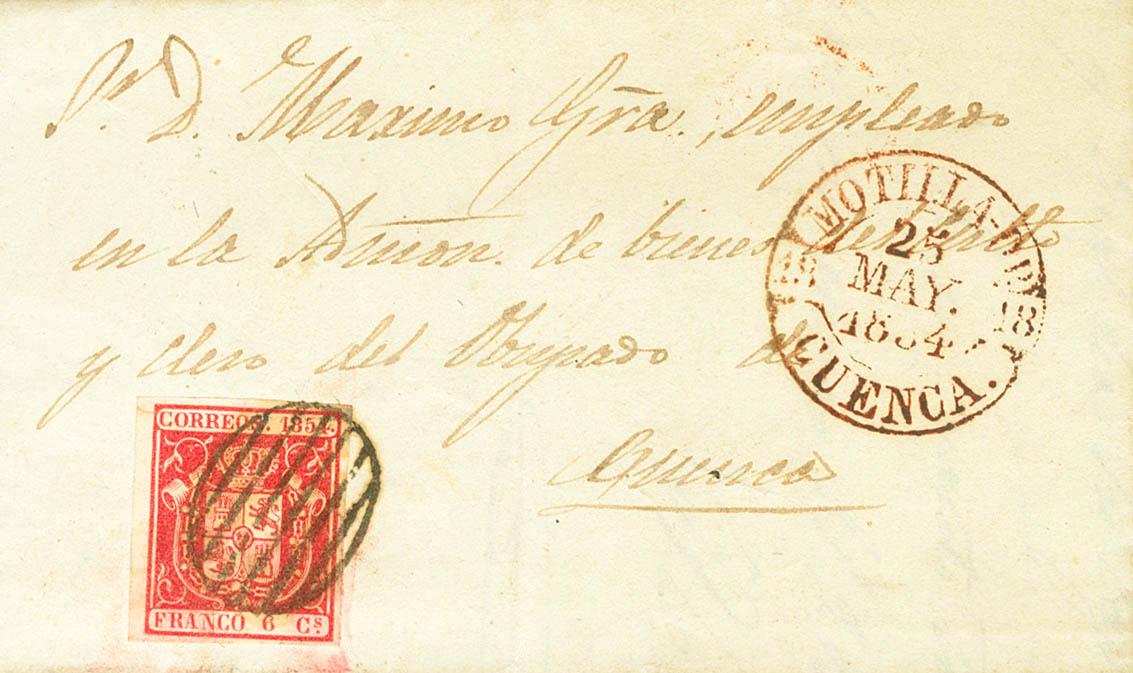 Sr. D. Maximo Gra., empleado
en la Admon. de bienes del
y clero del Obispado de
Cuenca
MOTILLA
25
MAY.
1854
18
18
CUENCA.
CORREOS. 1854.
FRANCO 6 Cs